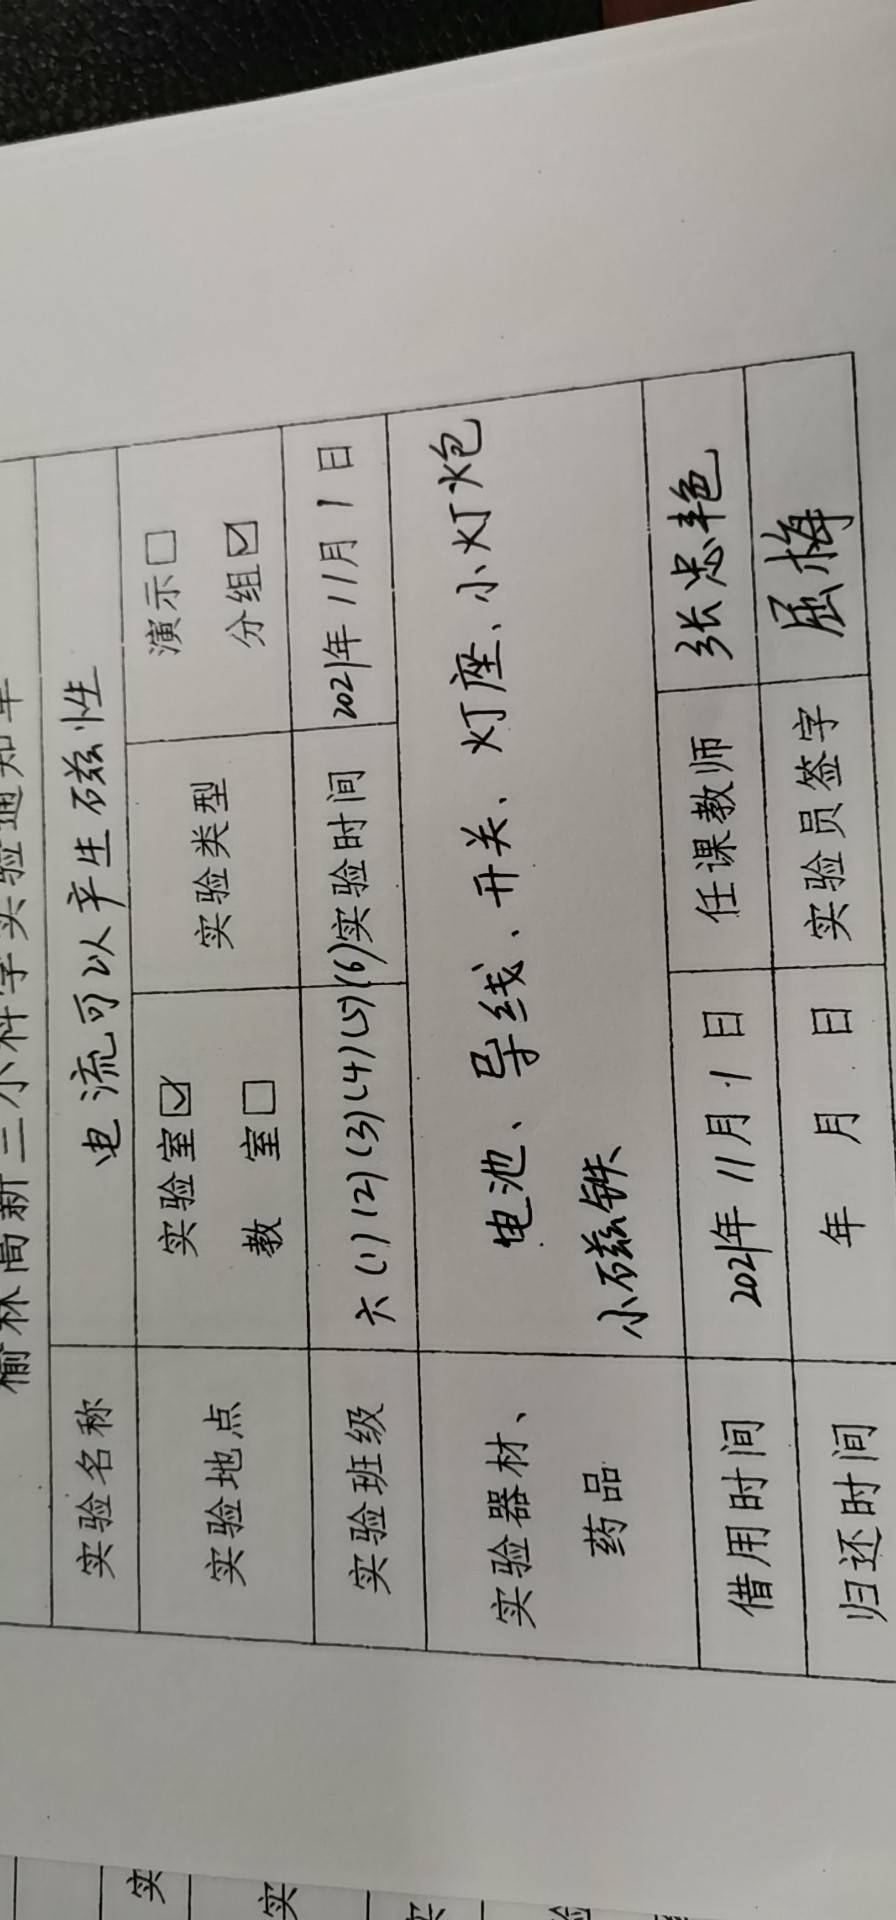 榆林高新三小科学实验通知单
实验名称 电流可以产生磁性
实验地点 实验室☑ 教室□ 实验类型 演示□ 分组☑
实验班级 六(1)(2)(3)(4)(5)(6) 实验时间 2021年11月1日
实验器材、药品 电池、导线、开关、灯座、小灯炮
小磁铁
借用时间 2021年11月1日 任课教师 张忠艳
归还时间 年 月 日 实验员签字 屈梅
实
实
实
验